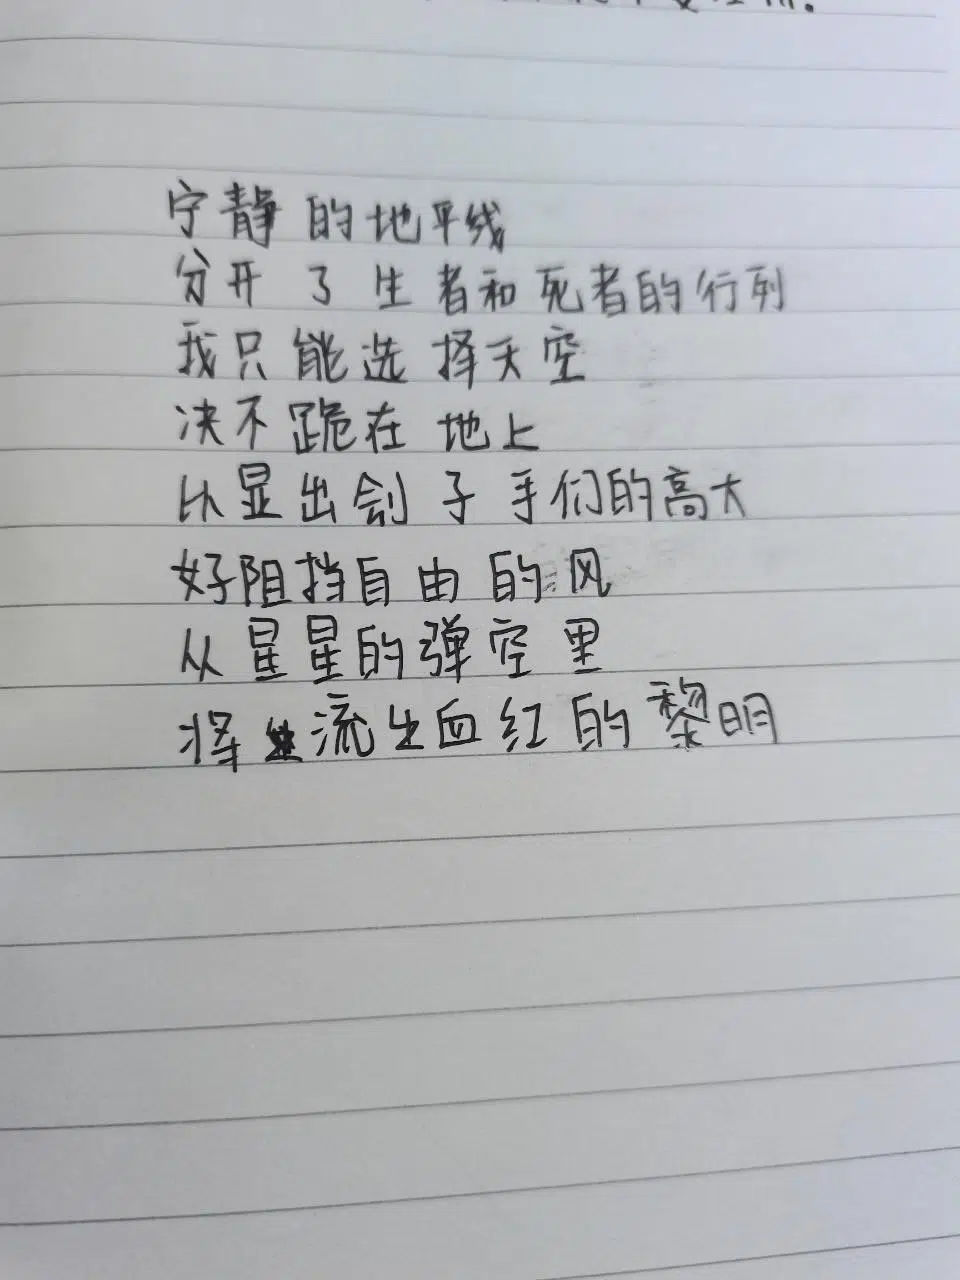 宁静的地平线
分开了生者和死者的行列
我只能选择天空
决不跪在地上
以显出刽子手们的高大
好阻挡自由的风
从星星的弹空里
将流出血红的黎明